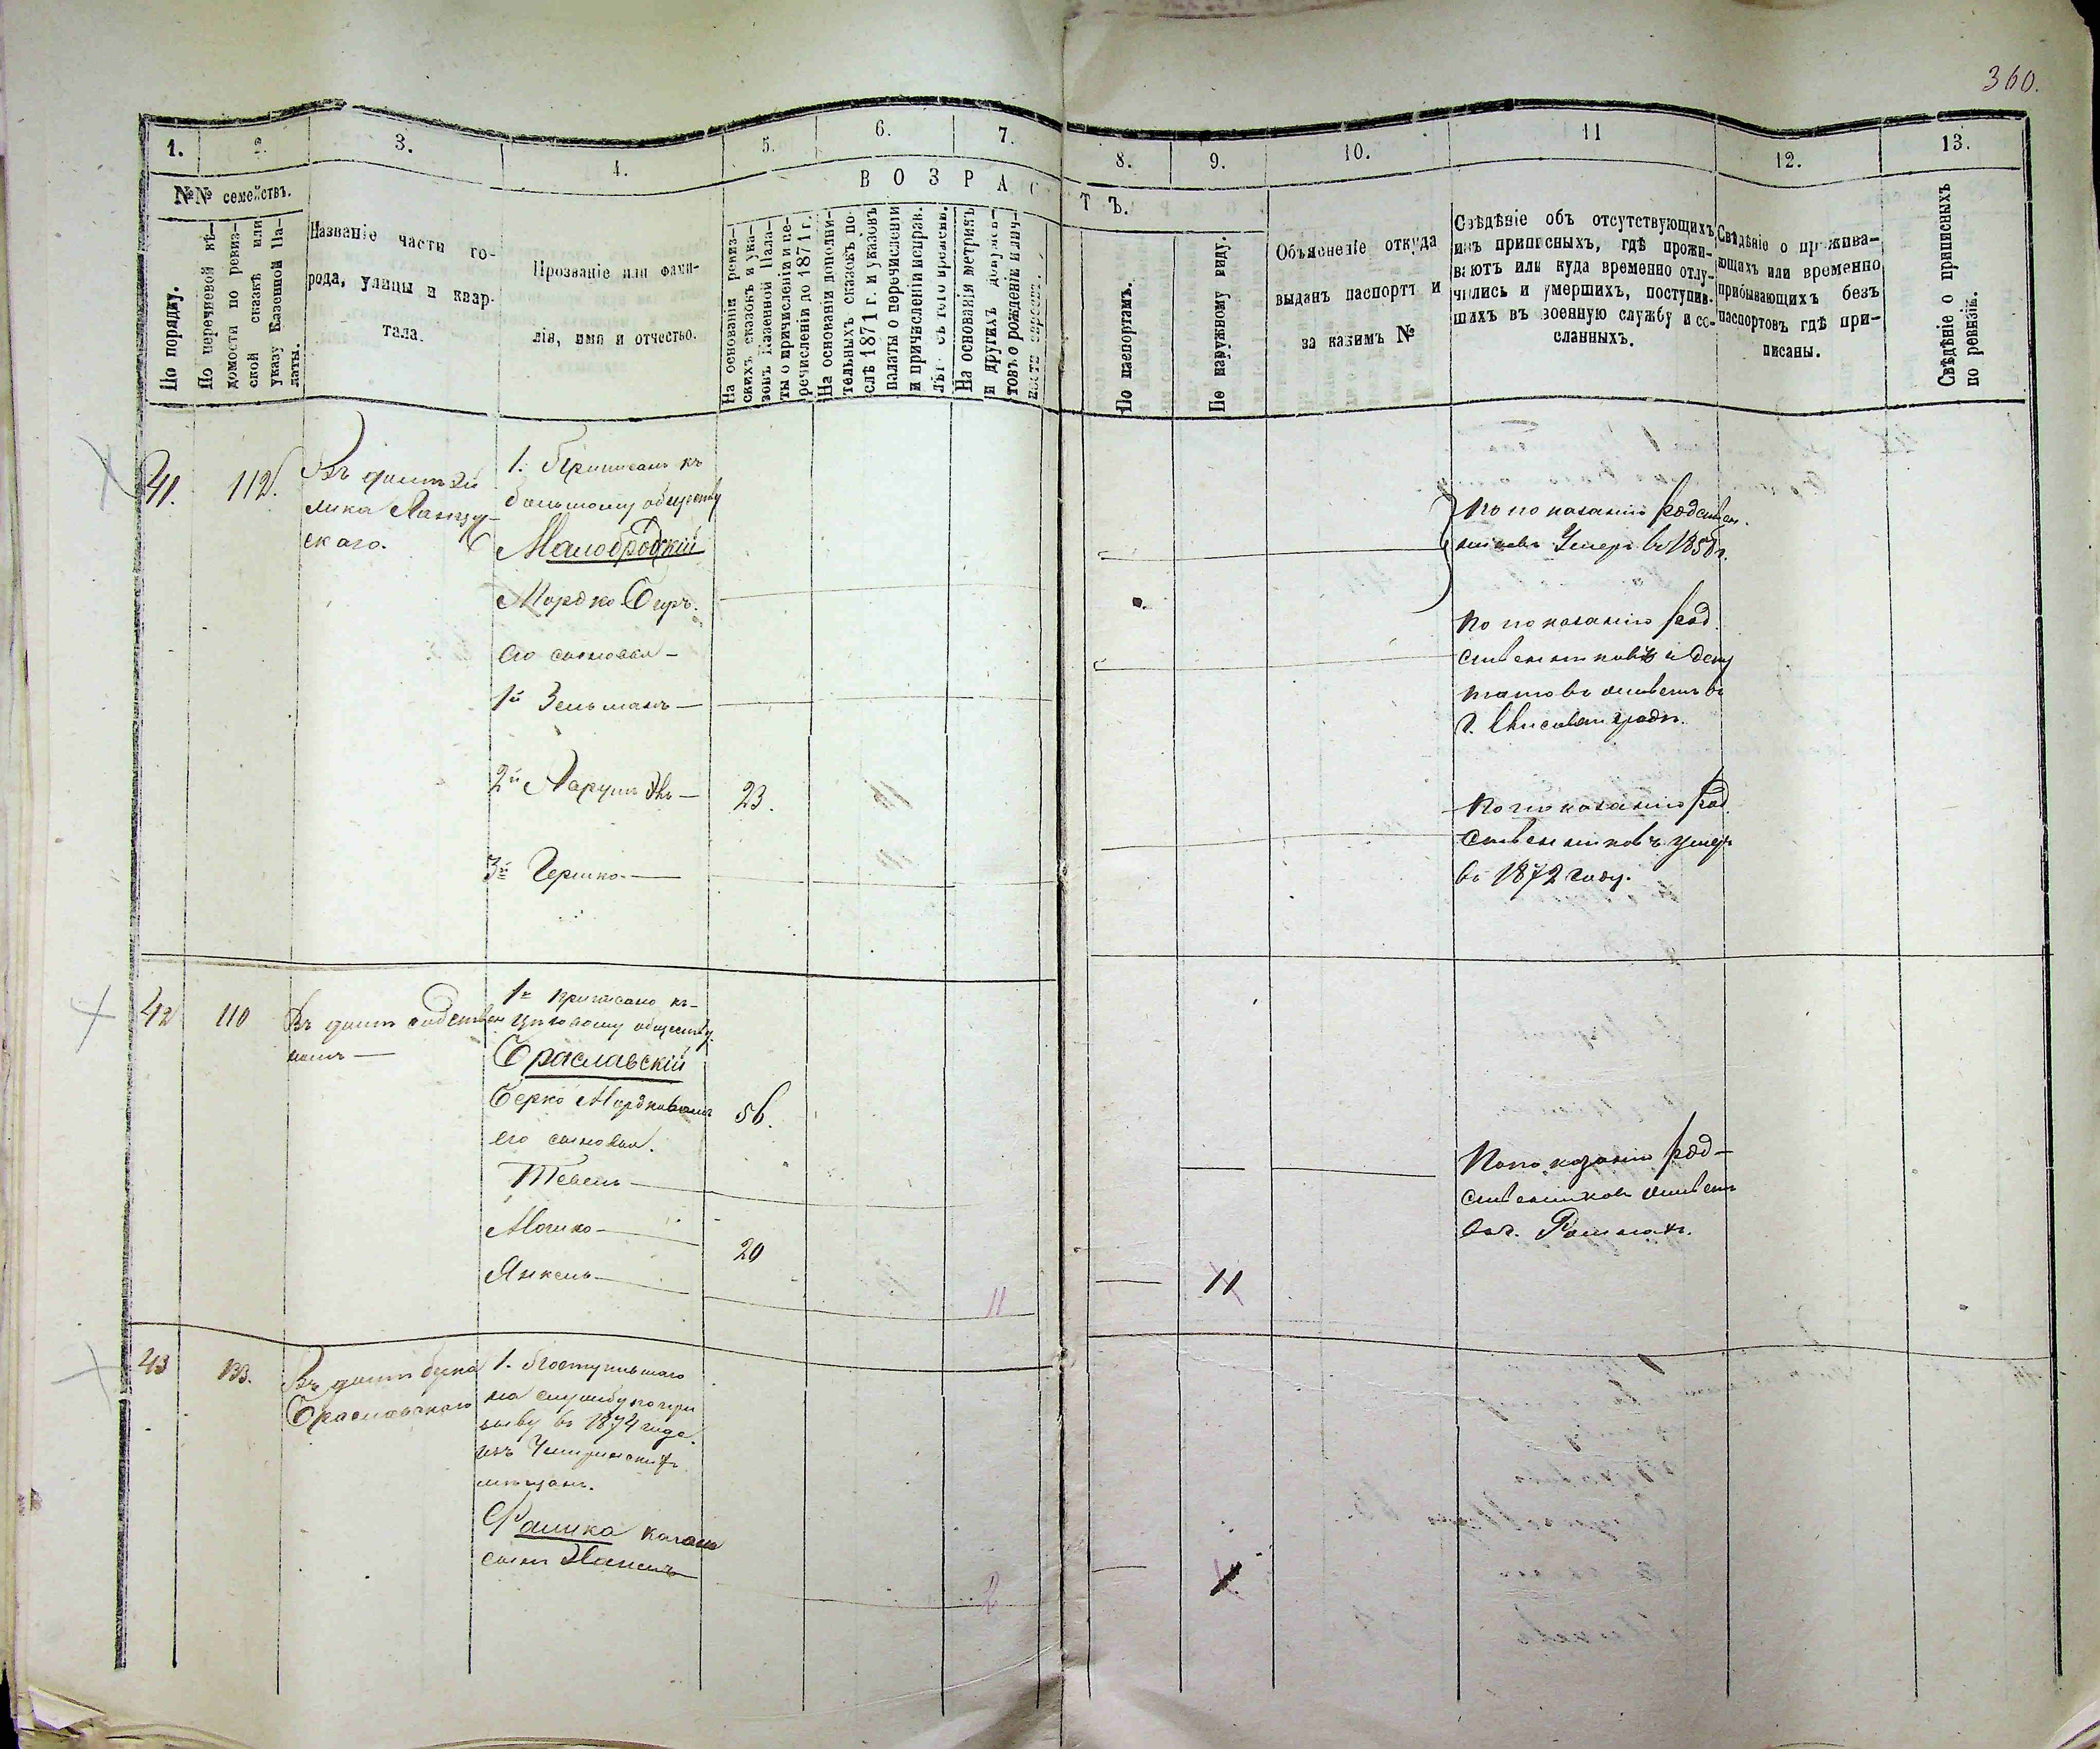 360.
1. 2. 3. 4. 5. 6. 7. 8. 9. 10. 11 12. 13.
№№ семействъ.
ВОЗРАСТЪ.
По порядку.
По перечневой вѣ-
домости по ревиз-
ской сказкѣ или
указу Казенной Па-
латы.
Названіе части го-
рода, улицы и квар-
тала.
Прозваніе или фами-
лія, имя и отчество.
На основаніи ревиз-
скихъ сказокъ и ука-
зовъ Казенной Пала-
ты о причисленіи и пе-
речисленіи до 1871 г.
На основаніи дополни-
тельныхъ сказокъ по-
слѣ 1871 г. и указовъ
палаты о перечисленіи
и причисленіи неправ.
На основаніи метрикъ
и другихъ докумен-
товъ о рожденіи
По паспортамъ.
По наружному виду.
Объясненіе откуда
выданъ паспортъ и
за какимъ №
Свѣдѣніе объ отсутствующихъ
изъ приписныхъ, гдѣ прожи-
ваютъ или куда временно отлу-
чились и умершихъ, поступив-
шихъ въ военную службу и со-
сланныхъ.
Свѣдѣніе о прожива-
ющахъ или временно
прибывающихъ безъ
паспортовъ гдѣ при-
писаны.
Свѣдѣніе о приписныхъ
по ревизіи.
41. 112.
Въ домѣ
скаго.
1. Приписанъ къ
большому обществу
Малобродскій
Мордко Беръ.
его сыновья —
1й Зельманъ —
2й —
23.
3й Гершко —
По показанію родствен-
никовъ Умеръ въ 1858 г.
По показанію род
ственниковъ и депу
татовъ живетъ въ
г. Елисаветградѣ.
По показанію род
ственниковъ умеръ
въ 1872 году.
42 110
Въ домѣ собствен
номъ —
1й Приписано къ
обществу
Браславскій
Берко Мордковичъ
56.
его сыновья.
Тевель —
Мошко —
20
Янкель —
11
11
По показанію род-
ственниковъ живетъ
въ г.
43 133.
Въ домѣ
Браславскаго
1. Поступившаго
на службу по при
зыву въ 1874 года.
изъ Чигиринскихъ
мѣщанъ.
сынъ
2